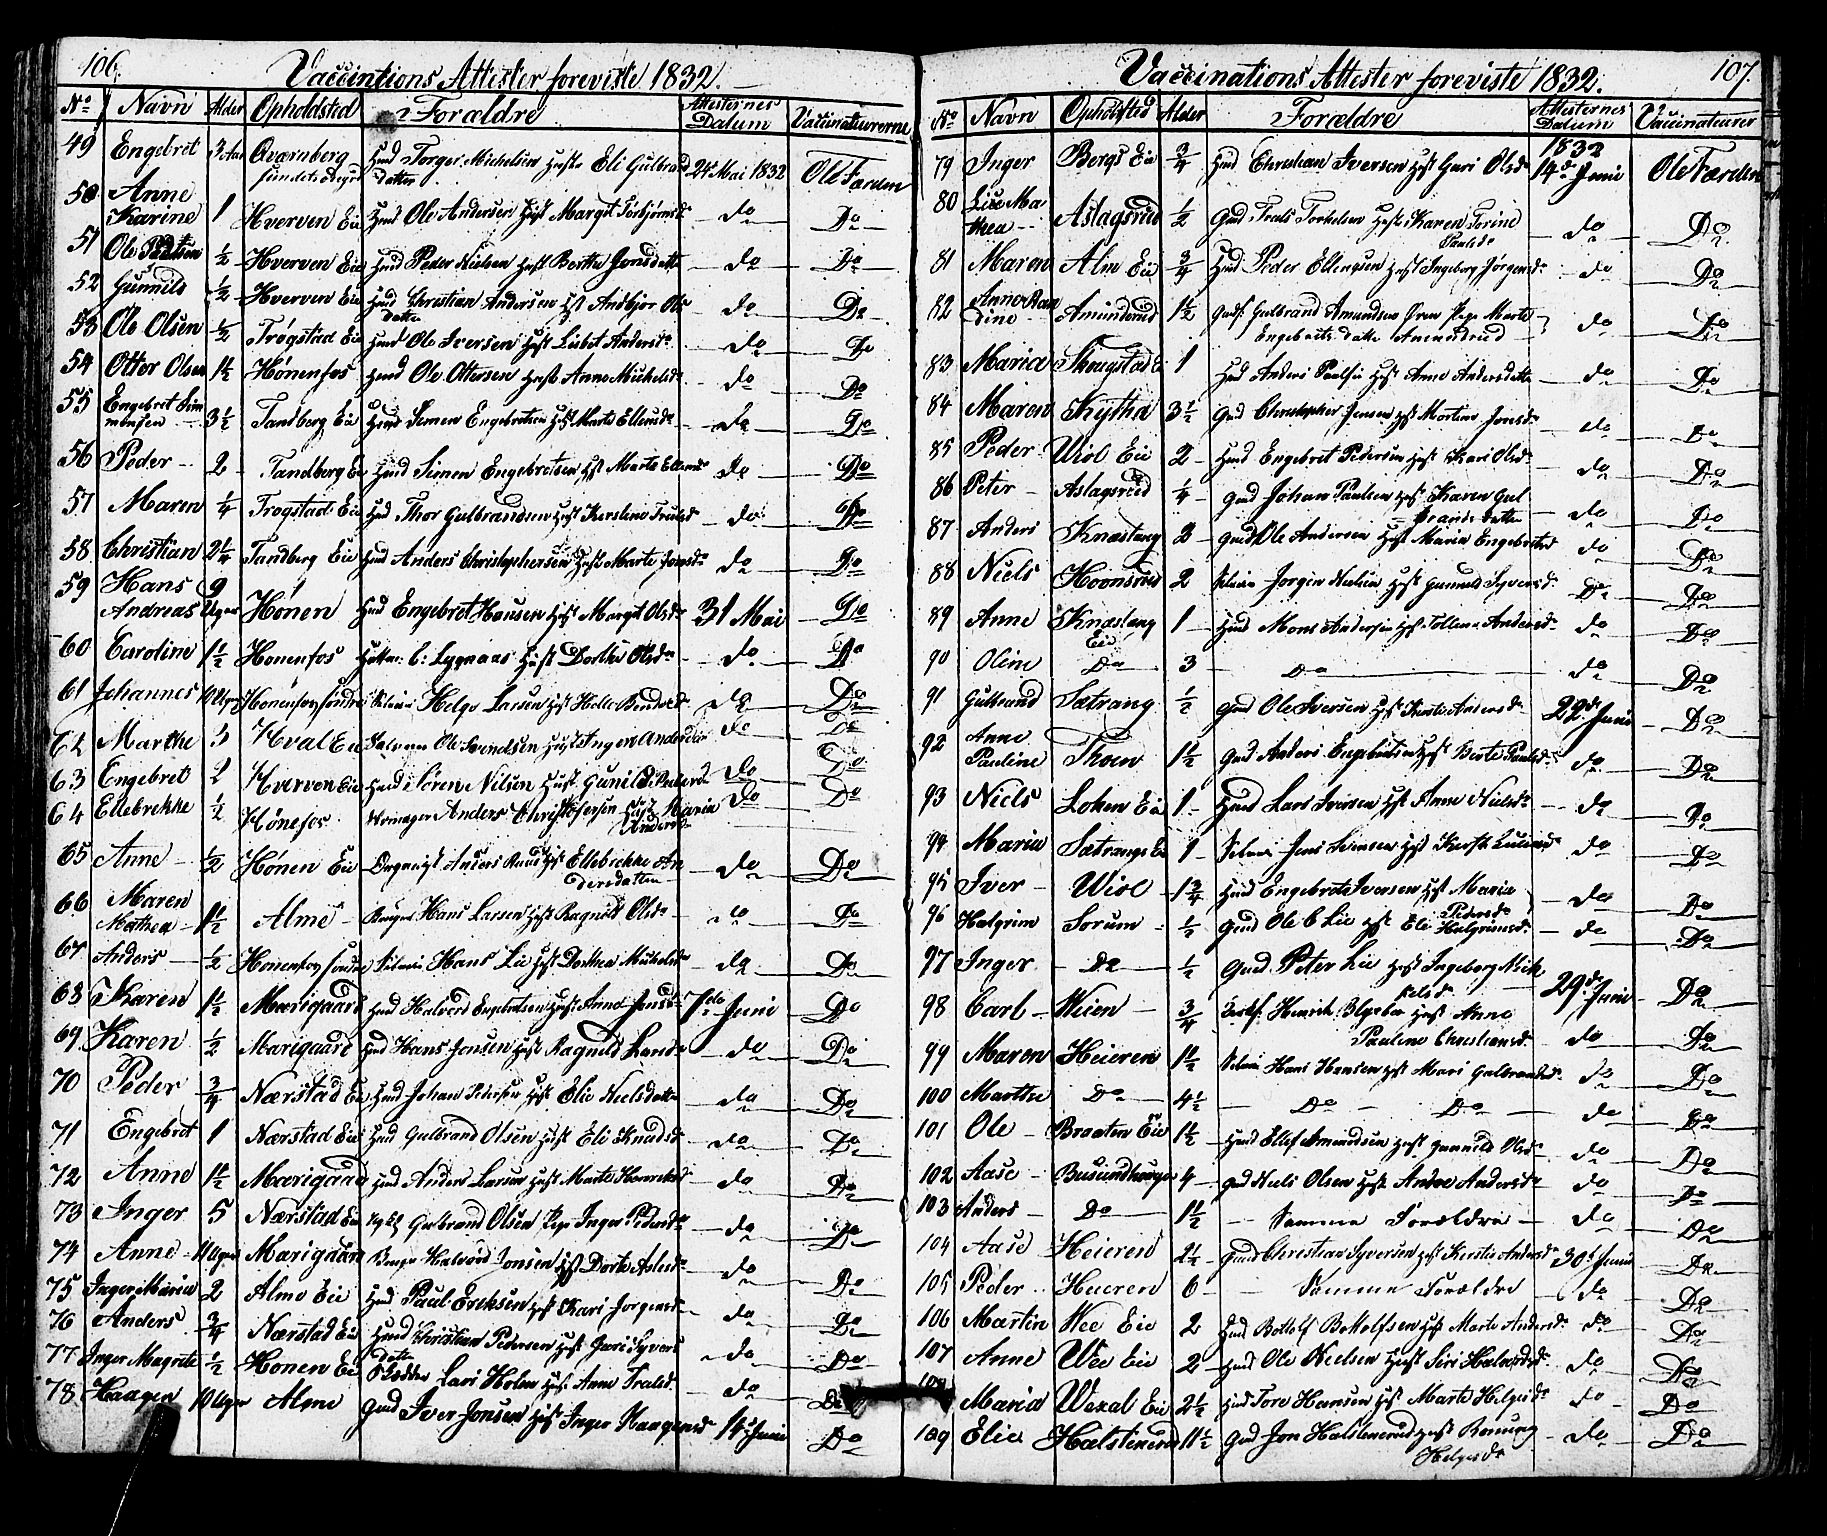 106.
Vaccintions Attester foreviste 1832.
No Navn Alder Opholdsted Forældre Attesternes Datum Vaccinateurerne
49 Engebret Qværnberg Hmd Torger Michelsen Hustr Eli Gulbrands datter 24 Mai 1832 Ole Færden
50 Anne Karine 1 Hverven Eie Hmd Ole Andersen Hust Margit Torbjørnsdr do Do
51 Ole ½ Hverven Eie Hmd Peder Nielsen Hust Berthe Jonsdatter do Do
52 Gunnild ½ Hverven Eie Hmd Christian Andersen Hst Andbjør Olsdatter do Do
53 Ole Olsen ½ Trøgstad Eie Hmd Ole Iversen Hust Lisbet Andersdr do Do
54 Otter Olsen 1½ Hønenfos Hmd Ole Ottersen Hust Anne Michelsdr do Do
55 Engebret Simmensen 3½ Tandberg Eie Hmd Simen Engebretsen Hst Marte Ellensdr do Do
56 Peder 2 Tandberg Eie Hmd Simen Engebretsen Hst Marte Ellensdr do Do
57 Maren ¼ Trogstad Eie Hmd Thor Gulbrandsen Hust Kerstine Trulsdr do Do
58 Christian 2¼ Tandberg Eie Hmd Anders Christophersen Hust Marte Jonsdr do Do
59 Hans Andreas 9 Uger Hønen Hmd Engebret Hansen Hst Margit Olsdr 31 Mai Do
60 Caroline 1½ Honenfos C: Lygnaas Hust Dorthe Olsdr do Do
61 Johannes 10 Uger Honenfos Søndre Helge Larsen Hst Helle do Do
62 Marthe 3 Hval Eie Ole Svendsen Hust Inger Andersdr do Do
63 Engebret 2 Hverven Eie Hmd Søren Nilsen Hust Gunild do Do
64 Ellebrekke ½ Hønefos Anders Christofersen Hust Maria Andersdr do Do
65 Anne ½ Hønen Eie Anders Hst Ellebrekke Andersdatter do Do
66 Maren Mathea 1½ Alme Hans Larsen Hst Ragnild Olsdr do Do
67 Anders ½ Honenfos Søndre Hans Lie Hst Dorthea Michelsdr do Do
68 Karen 1½ Mærigaard Hmd Halvord Engebretsen Hust Anne Jensdr 7de Juni Do
69 Karen ½ Marigaard Hmd Hans Jonsen Hst Ragnild Larsdr do Do
70 Peder ¾ Nærstad Eie Hmd Johan Petersen Hst Elie Nielsdatter do Do
71 Engebret 1 Nærstad Eie Hmd Gulbrand Olsen Hust Eli Knudsdr do Do
72 Anne 1½ Mærigaard Hmd Anders Larsen Hust Marte Henriksdr do Do
73 Inger 5 Nærstad Eie Gulbrand Olsen Pige Inger Pedersdr do Do
74 Anne 11 Uger Marigaard Halvord Jonsen Hst Dorte Aslesdr do Do
75 Inger Maria 2 Alme Eie Hmd Paul Eriksen Hst Kari Jorgensdr do Do
76 Anders ¾ Nærstad Eie Hmd Christian Pedersen Hust Guri Syversdatter do Do
77 Inger Magrete ½ Honen Eie Lars Holen Hust Anne Tralsdr do Do
78 Haagen 10 Uger Alme Gmd Iver Jonsen Hst Inger Haagensdr 14de Juni Do
107.
Vaccinations Attester foreviste 1832.
No Navn Opholdsted Alder Forældre Attesternes Datum Vaccinateurer
79 Inger Bergs Eie ¾ Hmd Christian Iversen Hst Gari Olsdr 1832 14de Juni Ole Færden
80 Lise Mathea Aslagsrud ½ Gmd Trals Torkelsen Hust Karen Torine Paulsdr do Do
81 Maren Alm Eie ¾ Hmd Peder Ellengsen Hst Ingeborg Jørgensdr do Do
82 Anne Randine Amundsrud 1½ Gulbrand Amundsen Pige Marte Engebretsdatter Amundrud do Do
83 Maria 1 Hmd Anders Paulsen Hst Anne Andersdatter do Do
84 Maren 3½ Gmd Christopher Jensen Hst Martine Jonsdr do Do
85 Peder Wiol Eie 2 Hmd Engebret Pedersen Hst Kari Olsdr do Do
86 Peter Aslagsrud ¼ Gmd Johan Paulsen Hst Karen Gulbrandsdatter do Do
87 Anders Knæstang 2 Gmd Ole Andersen Hst Maria Engebretsdr do Do
88 Niels 2 Jorgen Nielsen Hst Gunnild Syversdr Do Do
89 Anne Knæstang Eie 1 Hmd Mons Andersen Hst Andersdr do Do
90 Oline Do 3 Do do Do
91 Gulbrand Sætrang ½ Gmd Ole Iversen Hst Kersti Andersdr 22de Juni Do
92 Anne Pauline Thoen 1½ Gmd Anders Engebretsen Hst Berte Paulsdr do Do
93 Niels Lohen Eie 1 Hmd Lars Iversen Hst Anne Nielsdr do Do
94 Maria Sætrangs Eie 1 Jens Svensen Hst Kersti do Do
95 Iver Wiol 1¾ Hmd Engebret Iversen Hst Maria Pedersdr do Do
96 Halgrim Sorum ½ Gmd Ole C Lie Hst Eli Halgrimsdr do Do
97 Inger Do ½ Gmd Peter Lie Hst Ingeborg Mickelsdr 29de Juni Do
98 Carl Wiien ¾ Henrik Hst Anne Pauline Christiansdr do Do
99 Maren Heieren 1½ Hans Hansen Hst Mari Gulbrandsdr do Do
100 Marthe Do 4½ Do Do do Do
101 Ole Braaten Eie 1½ Hmd Ellef Amundsen Hst Gunnild Olsdr do Do
102 Aase 4 Gmd Niels Olsen Hst Andersdr do Do
103 Anders Do 1½ Samme Forældre do Do
104 Aase Heieren 2½ Gmd Christian Syversen Hst Kerstie Andersdr 30d Juni Do
105 Peder Heieren 6 Samme Forældre do Do
106 Martin Wee Eie 2 Hmd Bottolf Bottolfsen Hst Marte Andersdr do Do
107 Anne Wee Eie 2 Hmd Ole Nielsen Hust Siri Halvorsdr do Do
108 Maria Wexal Eie 2½ Hmd Tore Hansen Hst Marte Helgesdr do Do
109 Elie Halstenrud 11½ Gmd Jon Halstenrud Hst Ronnug Helgesdr do Do